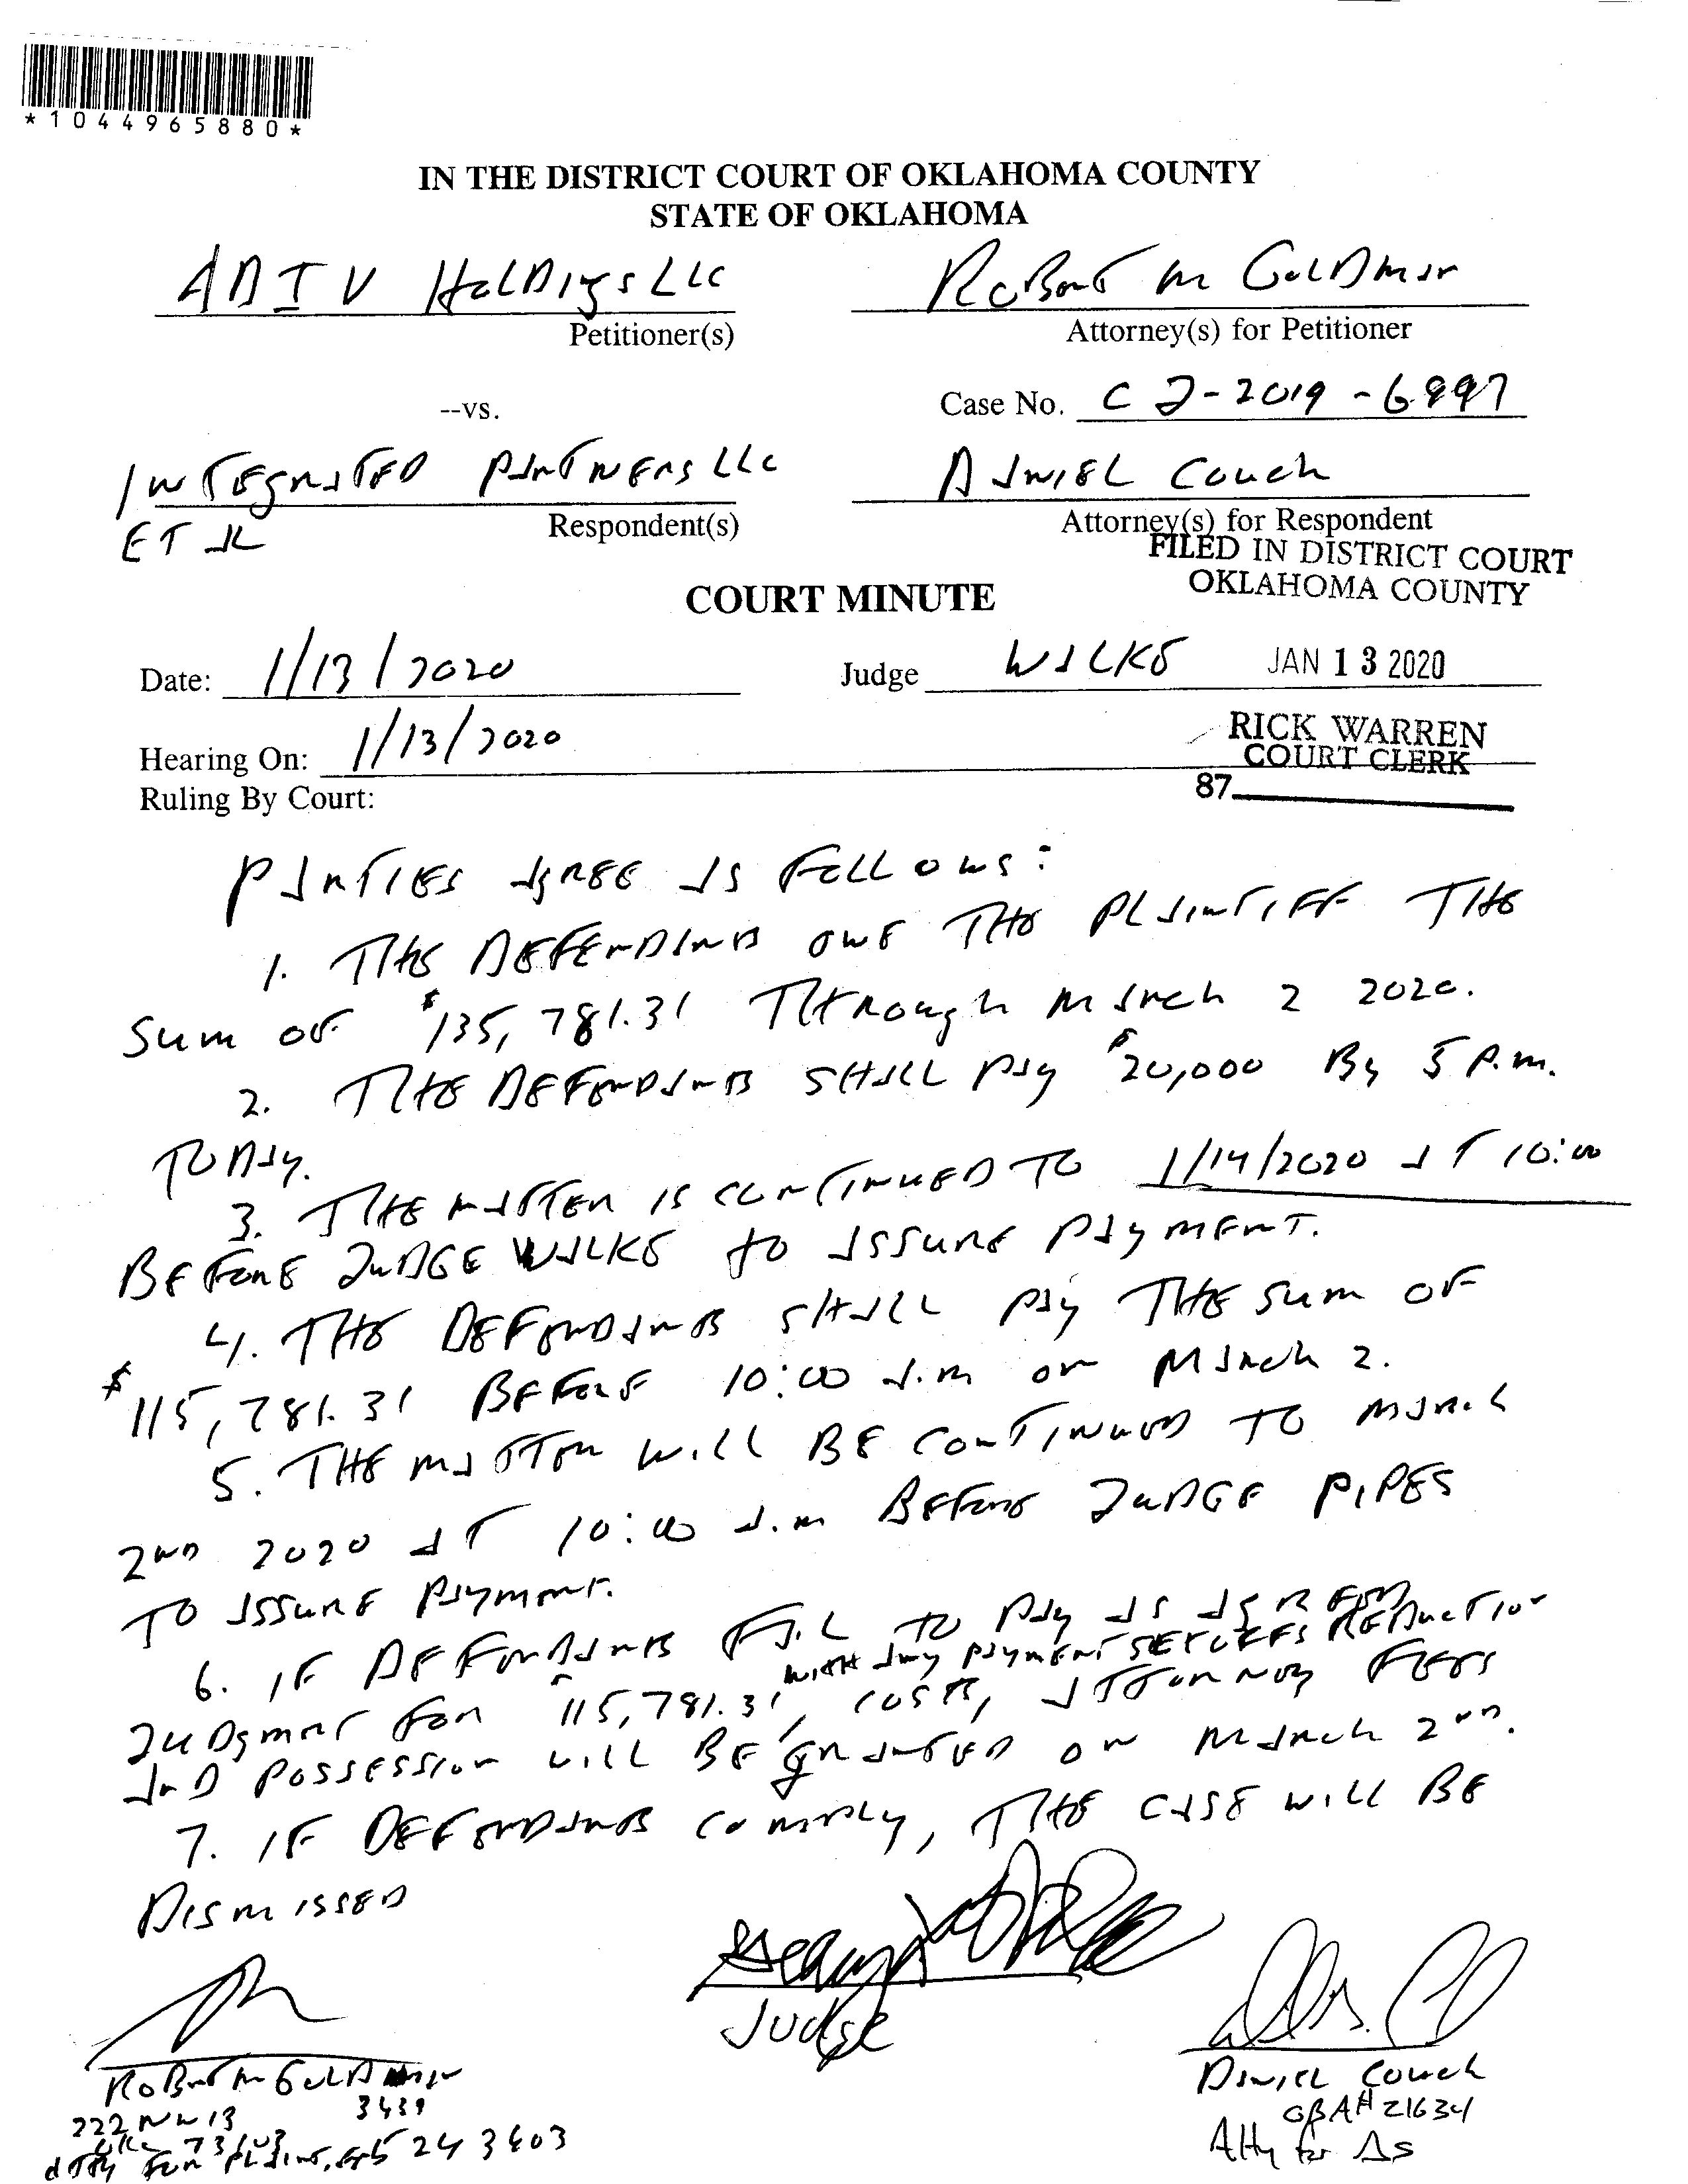 *1044965880*
IN THE DISTRICT COURT OF OKLAHOMA COUNTY
STATE OF OKLAHOMA
ADIV Holdings LLC Robert M Goldman
Petitioner(s) Attorney(s) for Petitioner
--vs. Case No. CJ-2019-6997
INTEGRATED PARTNERS LLC DANIEL Couch
ET AL Respondent(s) Attorney(s) for Respondent
FILED IN DISTRICT COURT
OKLAHOMA COUNTY
COURT MINUTE
Date: 1/13/2020 Judge WALKE JAN 13 2020
Hearing On: 1/13/2020 RICK WARREN
COURT CLERK
Ruling By Court: 87
PARTIES AGREE AS FOLLOWS:
1. THE DEFENDANTS OWE THE PLAINTIFF THE
SUM OF $135,781.31 THROUGH MARCH 2 2020.
2. THE DEFENDANTS SHALL PAY $20,000 BY 5 P.M.
TODAY.
3. THE MATTER IS CONTINUED TO 1/14/2020 AT 10:00
BEFORE JUDGE WALKE TO ASSURE PAYMENT.
4. THE DEFENDANTS SHALL PAY THE SUM OF
$115,781.31 BEFORE 10:00 A.M ON MARCH 2.
5. THE MATTER WILL BE CONTINUED TO MARCH
2ND 2020 AT 10:00 A.M BEFORE JUDGE PIPES
TO ASSURE PAYMENT.
6. IF DEFENDANTS FAIL TO PAY AS AGREED
WITH ANY PAYMENT SETOFFS REDUCTION
JUDGMENT FOR $115,781.31, COSTS, ATTORNEY FEES
AND POSSESSION WILL BE GRANTED ON MARCH 2ND.
7. IF DEFENDANTS COMPLY, THE CASE WILL BE
DISMISSED
Judge
ROBERT M GOLDMAN DANIEL COUCH
3439 OBA# 21634
222 NW 13 Atty for Δs
OKC 73103
ATTY FOR PLAINTIFF 5243403